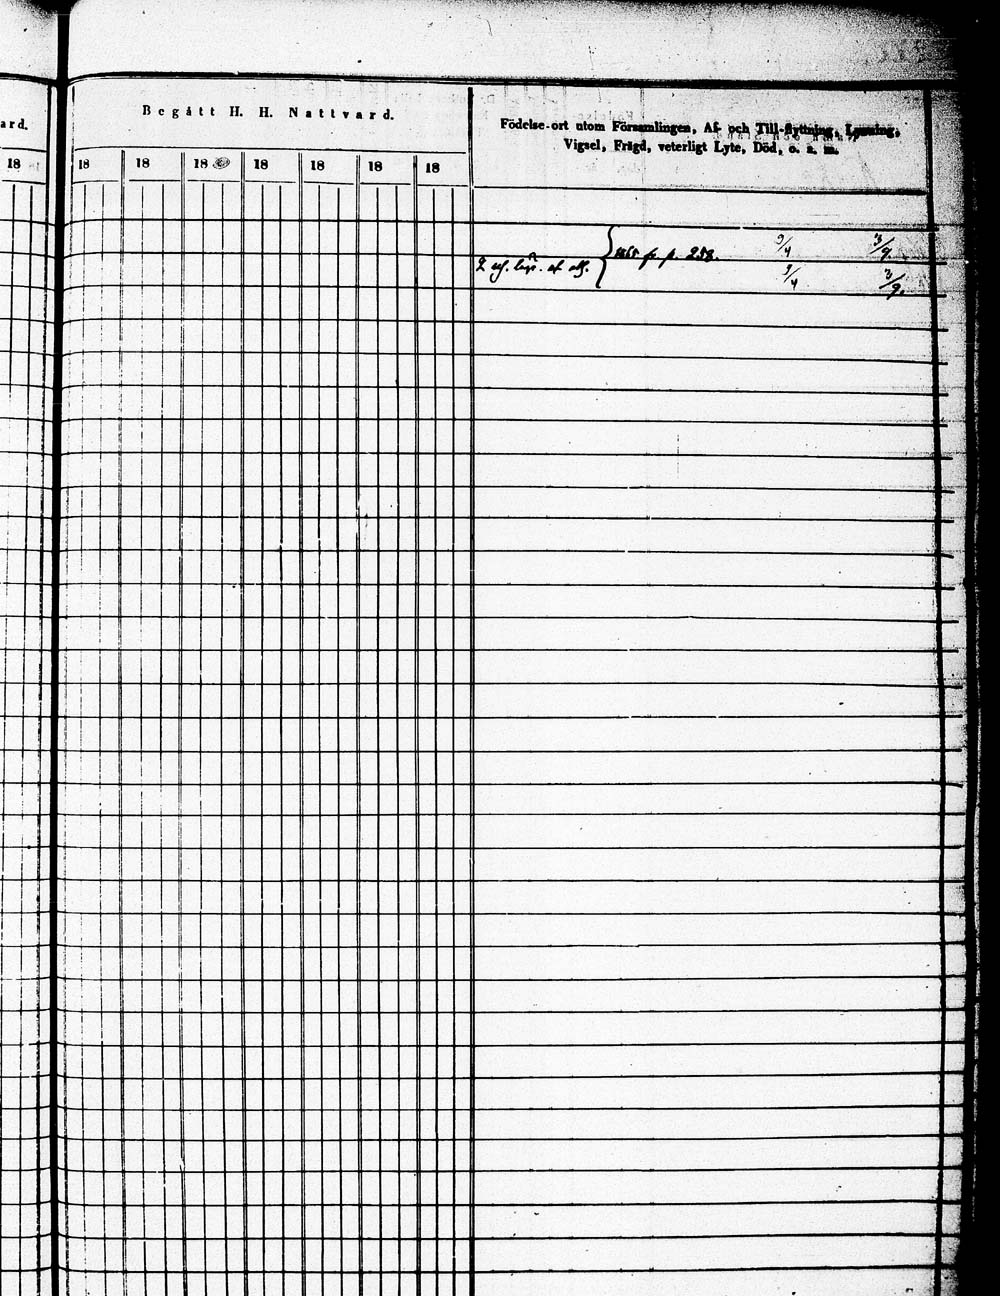 ard.
18
Begått H. H. Nattvard.
18 18 18 18 18 18 18
Födelse-ort utom Församlingen, Af- och Till-flyttning, Lysning,
Vigsel, Frägd, veterligt Lyte, Död, o. s. m.
1865 fr p. 258. 9/4 3/9.
2 af 9/4 3/9.